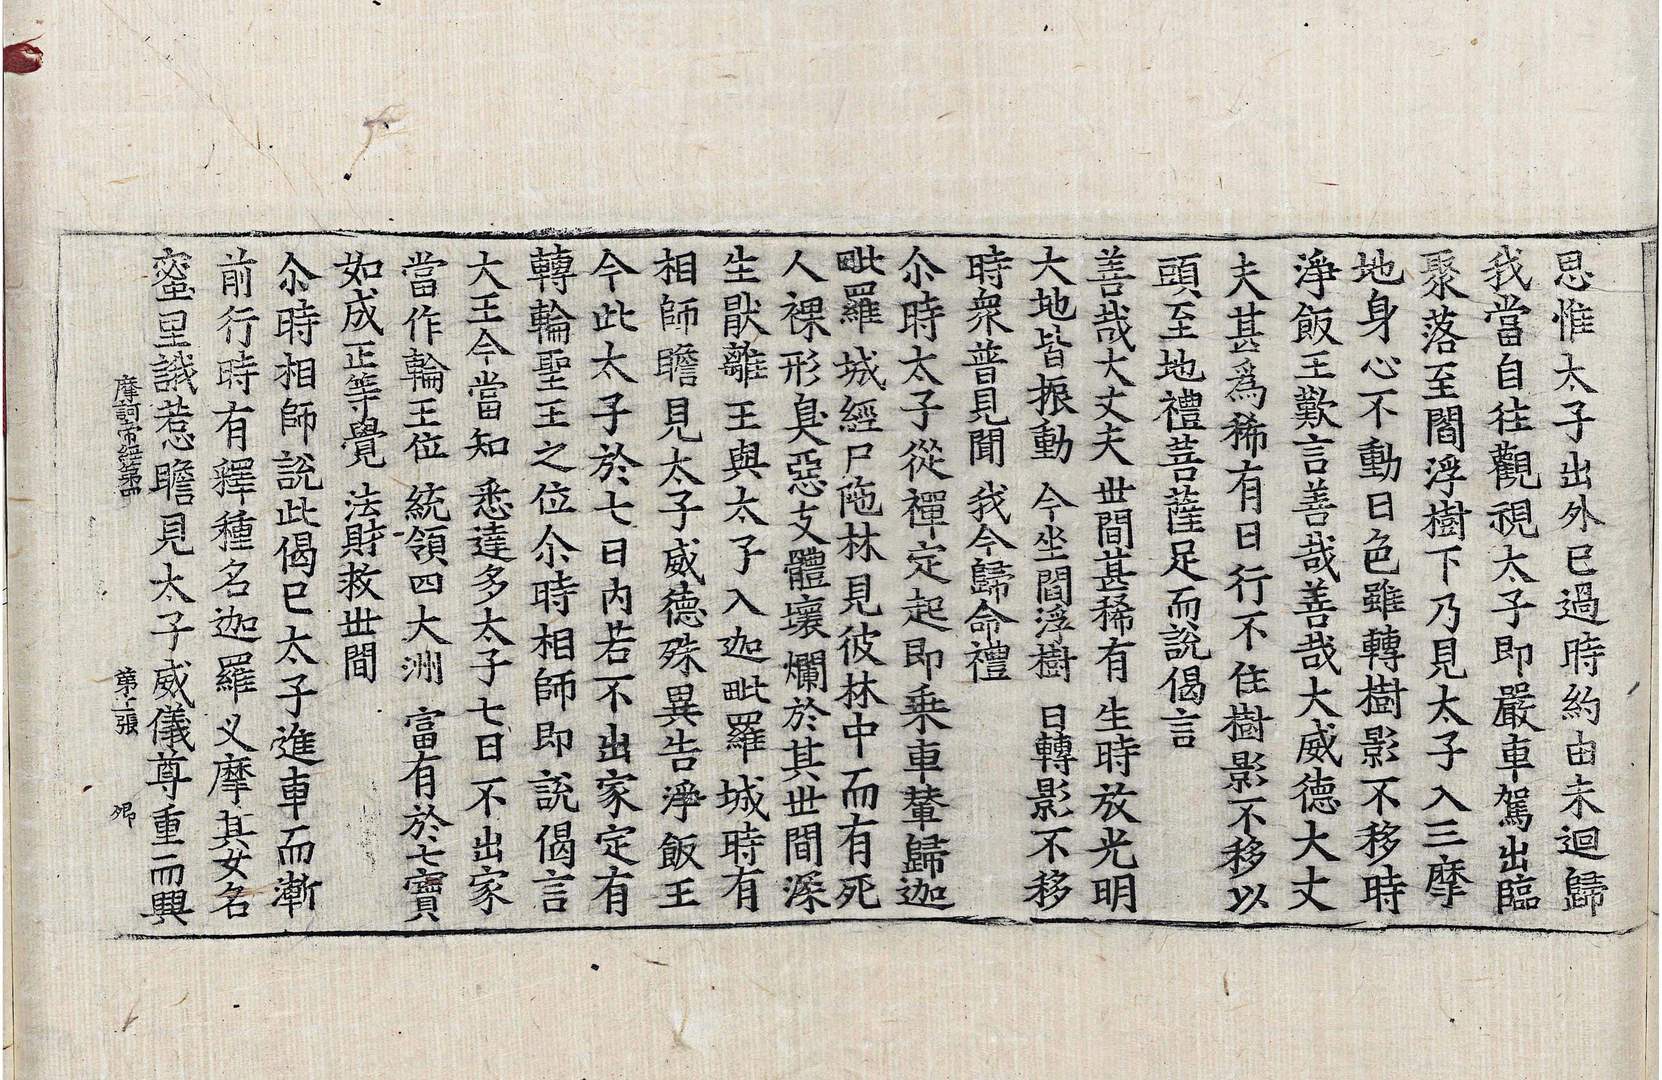 思惟太子出外已過時約由未迴歸
我當自往觀視太子即嚴車駕出臨
聚落至閻浮樹下乃見太子入三摩
地身心不動日色雖轉樹影不移時
淨飯王歎言善哉善哉大威德大丈
夫甚爲稀有日行不住樹影不移以
頭至地禮菩薩足而說偈言
善哉大丈夫 世間甚稀有 生時放光明
大地皆振動 今坐閻浮樹 日轉影不移
時衆普見聞 我今歸命禮
尒時太子從禪定起即乗車輦歸迦
毗羅城經尸陁林見彼林中而有死
人裸形臭惡支體壞爛於其世間深
生猒離王與太子入迦毗羅城時有
相師瞻見太子威德殊異告淨飯王
今此太子於七日內若不出家定有
轉輪聖王之位尒時相師即說偈言
大王今當知 悉達多太子 七日不出家
當作輪王位 統領四大洲 富有於七寶
如成正等覺 法財救世間
尒時相師說此偈已太子進車而漸
前行時有釋種名迦羅义摩其女名
蜜里誐惹瞻見太子威儀尊重而興
摩訶帝經第四 第十二張 卿